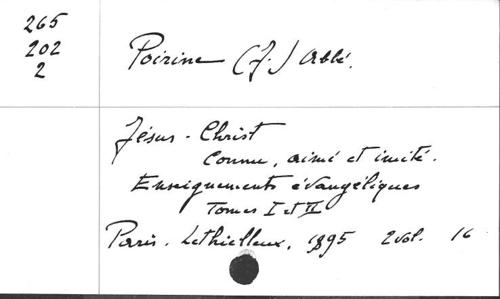 265
202
2
Poirine (J.) Abbé.
Jésus-Christ
Connu, aimé et imité.
Enseignements évangéliques
Tomes I et II
Paris. Lethielleux, 1895 2 vol. 16